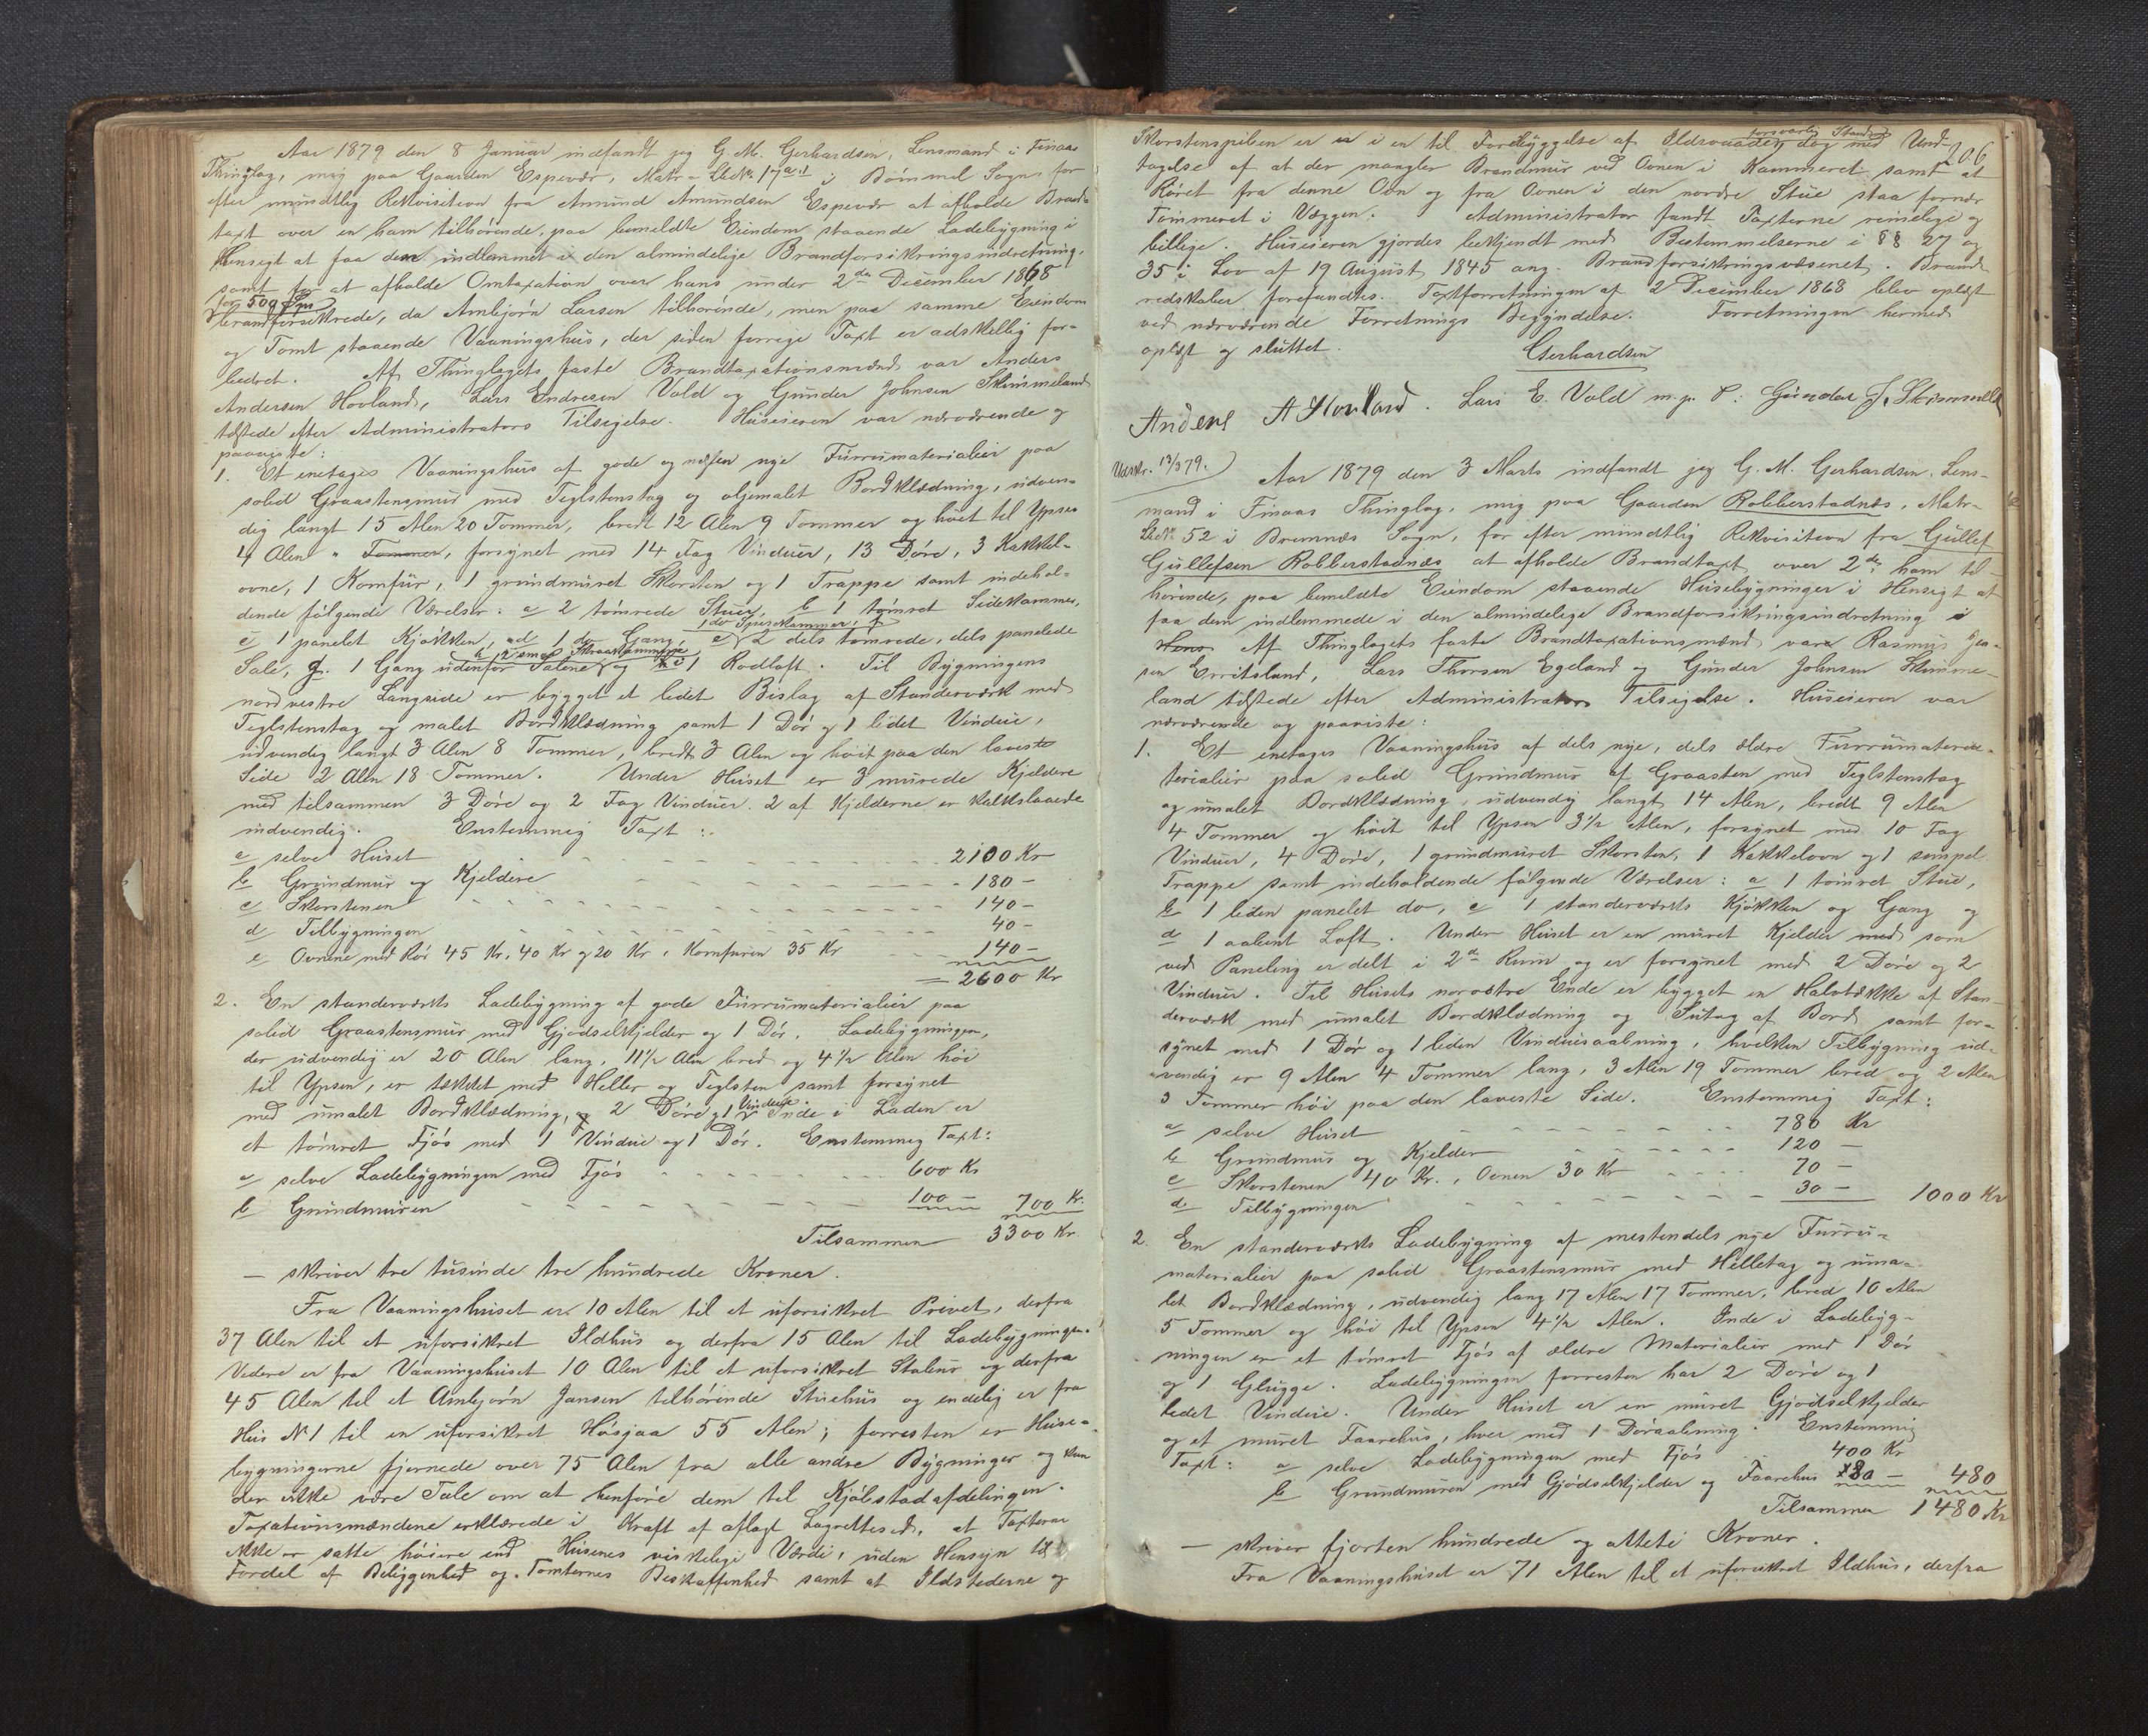 Aar 1879 den 8 Januar indfandt jeg G. M. Gerhardsen, Lensmand i Finaas
Thinglag, mig paa Gaarden Espevær, Matr-LbNr. 17 a.1 i Bömmel Sogn, for
efter mundtlig Rekvisition fra Amund Amundsen Espevær at afholde Brand-
taxt over en ham tilhörende, paa bemeldte Eiendom staaende Ladebygning i
Hensigt at faa den indlemmet i den almindelige Brandforsikringsindretning,
samt for at afholde Omtaxation over hans under 2den December 1868
for 509 Spd
brandforsikrede, da Ambjörn Larsen tilhörende, men paa samme Eiendom
og Tomt staaende Vaaningshus, der siden forrige Taxt er adskellig for-
bedret. Af Thinglagets faste Brandtaxationsmænd var Anders
Andersen Hovland, Lars Endresen Vold og Gunder Johnsen Skimmeland
tilstede efter Administrators Tilsigelse. Huseieren var nærværende og
paaviste:
1. Et enetages Vaaningshus af gode og næsten nye Furrumaterialier paa
solid Graastensmur med Teglstenstag og oljemalet Bordklædning, udven-
dig langt 15 Alen 20 Tommer, bredt 12 Alen 9 Tommer og höit til Ypsen
4 Alen " Tommer, forsynet med 14 Fag Vinduer, 13 Döre, 3 Kakkel-
ovne, 1 Komfur, 1 grundmuret Skorsten og 1 Trappe samt indehol-
dende fölgende Værelser: a 2 tömrede Stuer, b 1 tömret Sidekammer,
1 do Spisekammer, f
c 1 panelet Kjökken, d 1 do Gang, e 2 dels tömrede, dels panelede
h 2 smaa Skraakammere
Sale, g. 1 Gang udenfor Salene og i 1 Rodloft. Til Bygningens
nordvestre Langside er bygget et lidet Bislag af Standerværk med
Teglstenstag og malet Bordklædning samt 1 Dör og 1 lidet Vindue,
udvendig langt 3 Alen 8 Tommer, bredt 3 Alen og höit paa den laveste
Side 2 Alen 18 Tommer. Under Huset er 3 murede Kjeldere
med tilsammen 3 Döre og 2 Fag Vinduer. 2 af Kjelderne er kalkslaaede
indvendig. Enstemmig Taxt:
a selve Huset 2100 Kr
b Grundmur og Kjeldere 180 -
c Skorstenen 140 -
d Tilbygningen 40 -
e Ovnene med Rör 45 Kr, 40 Kr og 20 Kr, Komfuren 35 Kr 140 -
= 2600 Kr
2. En standerværks Ladebygning af gode Furrumaterialier paa
solid Graastensmur med Gjödselkjelder og 1 Dör. Ladebygningen,
der udvendig er 20 Alen lang, 11 1/2 Alen bred og 4 1/2 Alen höi
til Ypsen, er tækket med Heller og Teglsten samt forsynet
Vindue.
med umalet Bordklædning, 2 Döre og 1 Inde i Laden er
et tömret Fjös med 1 Vindue og 1 Dör. Enstemmig Taxt:
a selve Ladebygningen med Fjös 600 Kr
b Grundmuren 100 - 700 Kr.
Tilsammen 3300 Kr.
- skriver tre tusinde tre hundrede Kroner.
Fra Vaaningshuset er 10 Alen til et uforsikret Privet, derfra
37 Alen til et uforsikret Ildhus og derfra 15 Alen til Ladebygningen.
Videre er fra Vaaningshuset 10 Alen til et uforsikret Stabur og derfra
45 Alen til et Ambjörn Jansen tilhörende Stuehus og endelig er fra
Hus No 1 til en uforsikret Hösjaa 55 Alen; forresten er Huse-
bygningerne fjernede over 75 Alen fra alle andre Bygninger og kan
der ikke være Tale om at henföre dem til Kjöbstadafdelingen.
Taxationsmændene erklærede i Kraft af aflagt Lagrettesed, at Taxterne
ikke er satte höiere end Husenes virkelige Værdi, uden Hensyn til
Fordel af Beliggenhed og Tomternes Beskaffenhed samt at Ildstederne og
206
forsvarlig Stand
Skorstenspiben er i en til Forebyggelse af Ildsvaade dog med Und-
tagelse af at der mangler Brandmur ved Ovnen i Kammeret samt at
Röret fra denne Ovn og fra Ovnen i den nordre Stue staa fornær
Tömmeret i Væggen. Administrator fandt Taxterne rimelige og
billige. Huseieren gjordes bekjendt med Bestemmelserne i §§ 27 og
35 i Lov af 19 August 1845 ang. Brandforsikringsvæsenet. Brand-
redskaber forefandtes. Taxtforretningen af 2 December 1868 blev oplæst
ved nærværende Forretnings Begyndelse. Forretningen hermed
oplæst og sluttet.
Gerhardsen
Anders A Hovland. Lars E. Vold m. p. P. Gunder J. Skimmeland
Udskr. 13/3 79.
Aar 1879 den 3 Marts indfandt jeg G. M. Gerhardsen, Lens-
mand i Finaas Thinglag, mig paa Gaarden Robberstadnæs, Matr-
LbNr. 52 i Bremnæs Sogn, for efter mundtlig Rekvisition fra Gullef
Gullefsen Robberstadnæs at afholde Brandtaxt over 2de ham til-
hörende, paa bemeldte Eiendom staaende Husebygninger i Hensigt at
faa dem indlemmede i den almindelige Brandforsikringsindretning i
Hens. Af Thinglagets faste Brandtaxationsmænd vare Rasmus Jen-
sen Erritsland, Lars Thorsen Egeland og Gunder Johnsen Skimme-
land tilstede efter Administrators Tilsigelse. Huseieren var
nærværende og paaviste:
1. Et enetages Vaaningshus af dels nye, dels ældre Furrumateria-
terialier paa solid Grundmur af Graasten med Teglstenstag
og umalet Bordklædning, udvendig langt 14 Alen, bredt 9 Alen
4 Tommer og höit til Ypsen 3 1/2 Alen, forsynet med 10 Fag
Vinduer, 4 Döre, 1 grundmuret Skorsten, 1 Kakkelovn og 1 simpel
Trappe samt indeholdende fölgende Værelser: a 1 tömret Stue,
b 1 liden panelet do, c 1 standerværks Kjökken og Gang og
d 1 aabent Loft. Under Huset er en muret Kjelder med som
ved Paneling er delt i 2de Rum og er forsynet med 2 Döre og 2
Vinduer. Til Husets nordostre Ende er bygget en Halvtække af Stan-
derværk med umalet Bordklædning og Sutag af Bord samt for-
synet med 1 Dör og 1 liden Vinduesaabning, hvilken Tilbygning ud-
vendig er 9 Alen 4 Tommer lang, 3 Alen 19 Tommer bred og 2 Alen
3 Tommer höi paa den laveste Side. Enstemmig Taxt:
a selve Huset 780 Kr
b Grundmur og Kjelder 120 -
c Skorstenen 40 Kr., Ovnen 30 Kr 70 -
d Tilbygningen 30 - 1000 Kr
2. En standerværks Ladebygning af mestendels nye Furru-
materialier paa solid Graastensmur med Helletag og uma-
let Bordklædning, udvendig lang 17 Alen 17 Tommer, bred 10 Alen
5 Tommer og höi til Ypsen 4 1/2 Alen. Inde i Ladebyg-
ningen er et tömret Fjös af ældre Materialier med 1 Dör
og 1 Glugge. Ladebygningen forresten har 2 Döre og 1
lidet Vindue. Under Huset er en muret Gjödselkjelder
og et muret Faarehus, hver med 1 Döraabning. Enstemmig
Taxt: a selve Ladebygningen med Fjös 400 Kr
b Grundmuren med Gjödselkjelder og Faarehus 80 - 480
Tilsammen 1480 Kr
- skriver fjorten hundrede og otteti Kroner.
Fra Vaaningshuset er 71 Alen til et uforsikret Ildhus, derfra